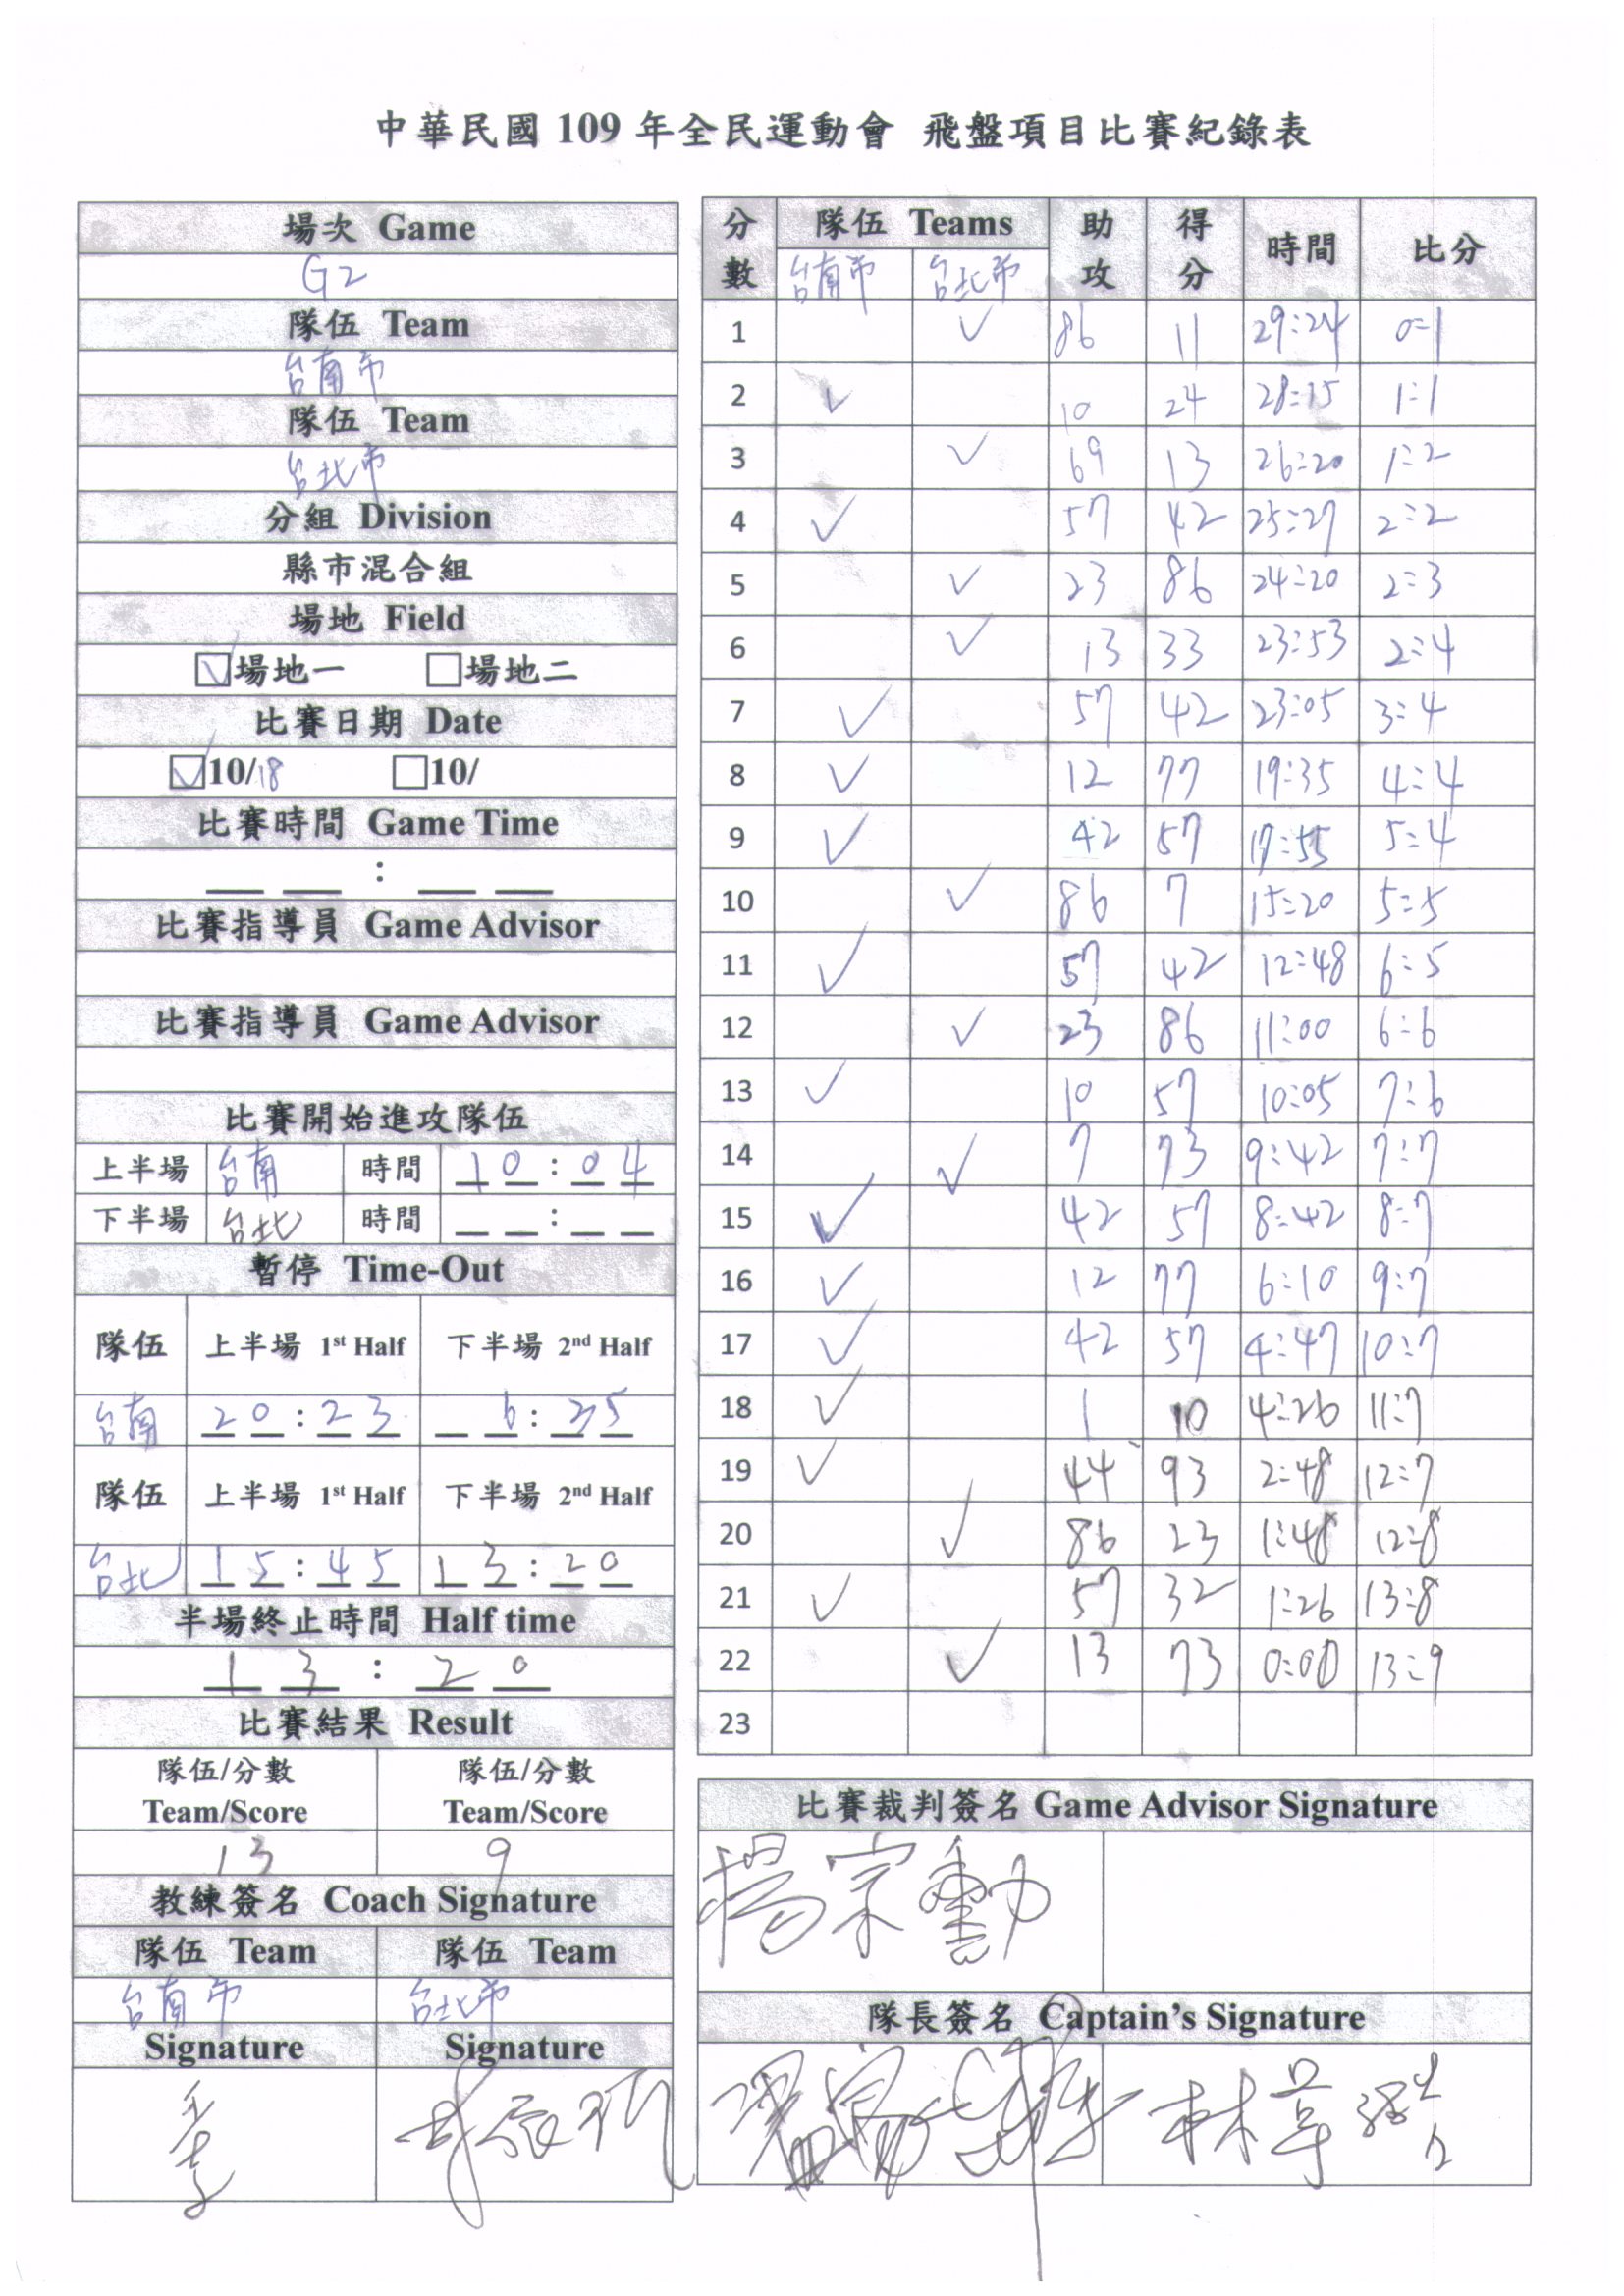 中華民國 109 年全民運動會 飛盤項目比賽紀錄表
場次 Game
G2
隊伍 Team
台南市
隊伍 Team
台北市
分組 Division
縣市混合組
場地 Field
☑場地一 ☐場地二
比賽日期 Date
☑10/18 ☐10/
比賽時間 Game Time
__ __ : __ __
比賽指導員 Game Advisor
比賽指導員 Game Advisor
比賽開始進攻隊伍
上半場 台南 時間 10:04
下半場 台北 時間 __ __ : __ __
暫停 Time-Out
隊伍 上半場 1st Half 下半場 2nd Half
台南 20:23 6:35
隊伍 上半場 1st Half 下半場 2nd Half
台北 15:45 13:20
半場終止時間 Half time
13:20
比賽結果 Result
隊伍/分數 隊伍/分數
Team/Score Team/Score
13 9
教練簽名 Coach Signature
隊伍 Team 隊伍 Team
台南市 台北市
Signature Signature
分數 隊伍 Teams 助攻 得分 時間 比分
台南市 台北市
1 ✓ 86 11 29:24 0:1
2 ✓ 10 24 28:15 1:1
3 ✓ 69 13 26:20 1:2
4 ✓ 57 42 25:27 2:2
5 ✓ 23 86 24:20 2:3
6 ✓ 13 33 23:53 2:4
7 ✓ 57 42 23:05 3:4
8 ✓ 12 77 19:35 4:4
9 ✓ 42 57 17:55 5:4
10 ✓ 86 7 15:20 5:5
11 ✓ 57 42 12:48 6:5
12 ✓ 23 86 11:00 6:6
13 ✓ 10 57 10:05 7:6
14 ✓ 7 73 9:42 7:7
15 ✓ 42 57 8:42 8:7
16 ✓ 12 77 6:10 9:7
17 ✓ 42 57 4:47 10:7
18 ✓ 1 10 4:26 11:7
19 ✓ 44 93 2:48 12:7
20 ✓ 86 23 1:48 12:8
21 ✓ 57 32 1:26 13:8
22 ✓ 13 73 0:00 13:9
23
比賽裁判簽名 Game Advisor Signature
楊宗勳
隊長簽名 Captain's Signature